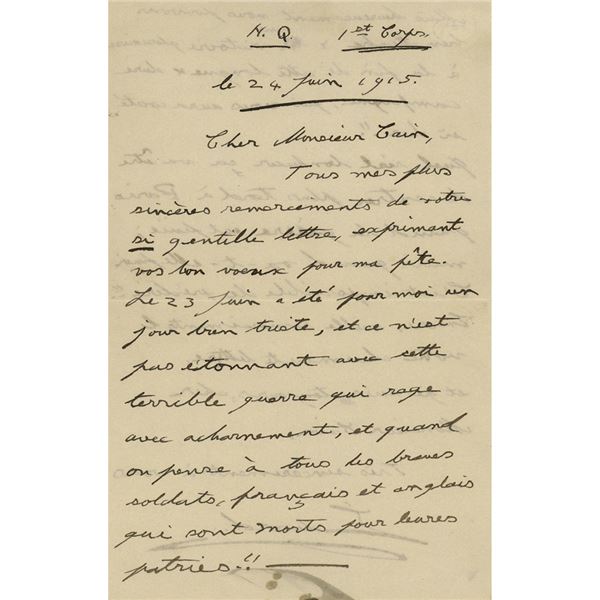 H. Q. 1st Corps.
le 24 Juin 1915.
Cher Monsieur Cain,
Tous mes plus
sincères remerciements de votre
si gentille lettre, exprimant
vos bon voeux pour ma fête.
Le 23 Juin a été pour moi un
jour bien triste, et ce n'est
pas étonnant avec cette
terrible guerre qui rage
avec acharnement, et quand
on pense à tous les braves
soldats, français et anglais
qui sont morts pour leures
patries!!